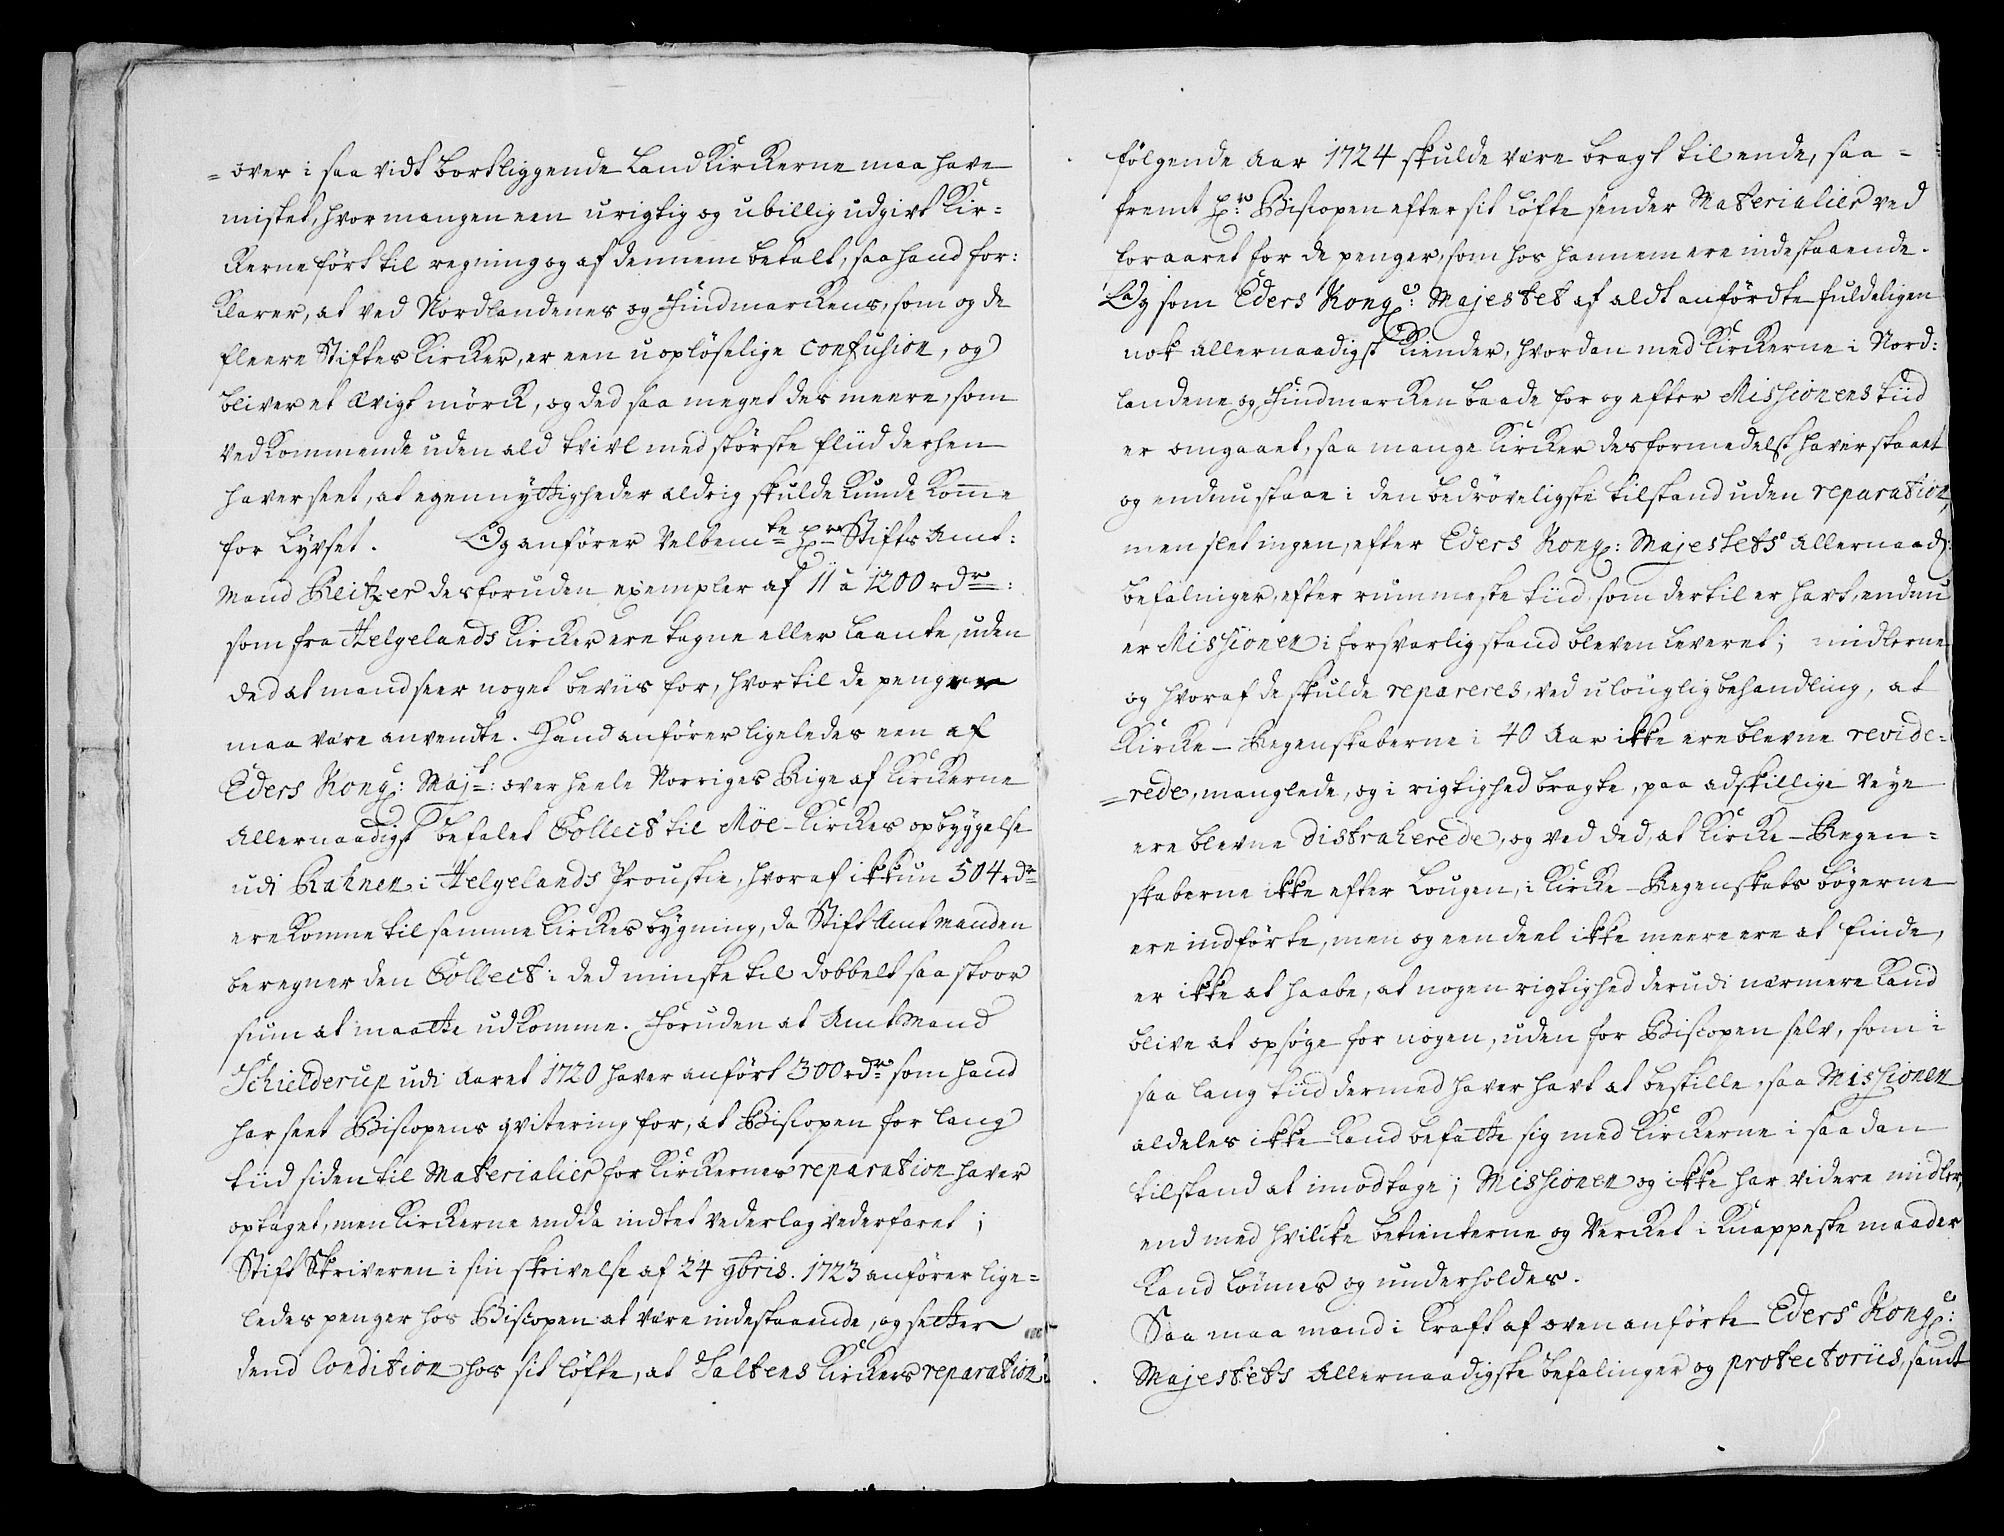 = over i saa vidt bortliggende Land Kirckerne maa have
mistet, hvormangen een urigtig og ubillig udgivt Kir=
kerne ført til regning og af dennem betalt, saa hand for:
klarer, at ved Nordlandenes og Findmarckens, som og de
fleere Stiftes Kircker, er een uopløselige confusion, og
bliver et Ævigt mørck, og ded saa meget des meere, som
vedkommende uden ald tvivl med største fliid derhen
haver seet, at egennyttigheder aldrig skulde kunde komme
for Lyyset. Og anfører Velbemte Hr Stifts Amt:
Mand Kleitzer desforuden exempler af 11 a 1200 rdr:
som fra Helgelands Kircker ere tagne eller laante, uden
ded at mand seer noget beviis for, hvortil de penger
maa være anvendte. Hand anfører ligeledes een af
Eders Kongl: Majt: over heele Norriges Rige af Kirckerne
Allernaadigst befalet Collect til Moe-Kirckes opbyggelse
udi Rahnen i Helgelands Proustie, hvoraf ikkun 504 rdr
ere komne til samme Kirckes bygning, da Stift Amtmanden
beregner den Collect i ded minste til dobbelt saa stoor
sum at maatte udkomme. Foruden at Amtmand
Schielderup udi Aaret 1720 haver anført 300 rdr som hand
har seet Biscopens qvitering for, at Biscopen for lang
tiid siden til Materialier for Kirckernes reparation haver
optaget, men Kirckerne endda indtet vederlag vederfaret;
Stift Skriveren i sin skrivelse af 24 9bris. 1723 anfører lige=
ledes penger hos Biscopen at være indestaaende, og setter
dend Condition hos sit løfte, at Saltens Kirckers reparation
følgende Aar 1724 skulde være bragt til ende, saa=
fremt Hr: Biscopen efter sit løfte sender Materialier ved
foraaret for de penger, som hos hannem ere indestaaende.
Og som Eders Kongl: Majestet af aldt anførdte fuldeligen
nok allernaadigst kiender, hvordan med Kirckerne i Nord:
landene og Findmarcken baade for og efter Missionens tiid
er omgaaet, saa mange Kircker desformedelst haver staaet
og endnu staae i den bedrøveligste tilstand uden reparation,
men slet ingen, efter Eders Kongl: Majestets Allernaad:
befalinger, efter rummeste tiid, som dertil er havt, endnu
er Missionen i forsvarlig stand bleven leveret; midlerne
og hvoraf de skulde repareres, ved ulouglig behandling, at
Kircke-Regenskaberne i 40 Aar ikke ere blevne revide=
=rede, manglede, og i rigtighed bragte, paa adskillige veye
ere blevne distraherede, og ved ded, at Kircke-Regen=
skaberne ikke efter Lougen, i Kircke-Regenskabs bøgerne
ere indførte, men og een deel ikke meere ere at finde,
er ikke at haabe, at nogen rigtighed derudi nærmere kand
blive at opsøge for nogen, uden for Biscopen selv, som i
saa lang tiid dermed haver havt at bestille, saa Missionen
aldeles ikke kand befatte sig med Kirckerne i saadan
tilstand at imodtage; Missionen og ikke har videre midler,
end med hvilke betienterne og Vercket i knappeste maader
kand lønnes og underholdes.
Saa maa mand i kraft af ovenanførte Eders Kongl:
Majestets Allernaadigste befalinger og protectoriis, samt